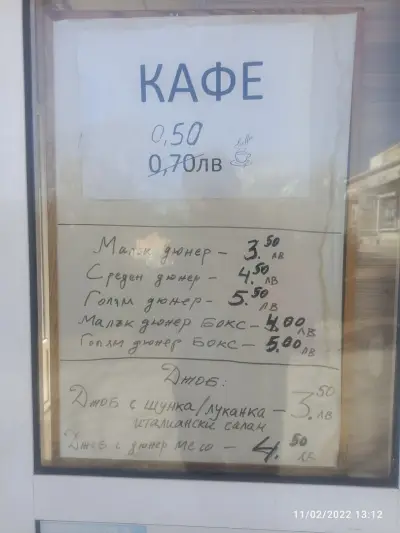 КАФЕ
0,50
0,70лв
Малък дюнер - 3.50 лв
Среден дюнер - 4.50 лв
Голям дюнер - 5.50 лв
Малък дюнер БОКС - 4.00 лв
Голям дюнер БОКС - 5.00 лв
Джоб:
Джоб с шунка/луканка - 3.50 лв
италиански салам
Джоб с дюнер месо - 4.50 лв
11/02/2022 13:12